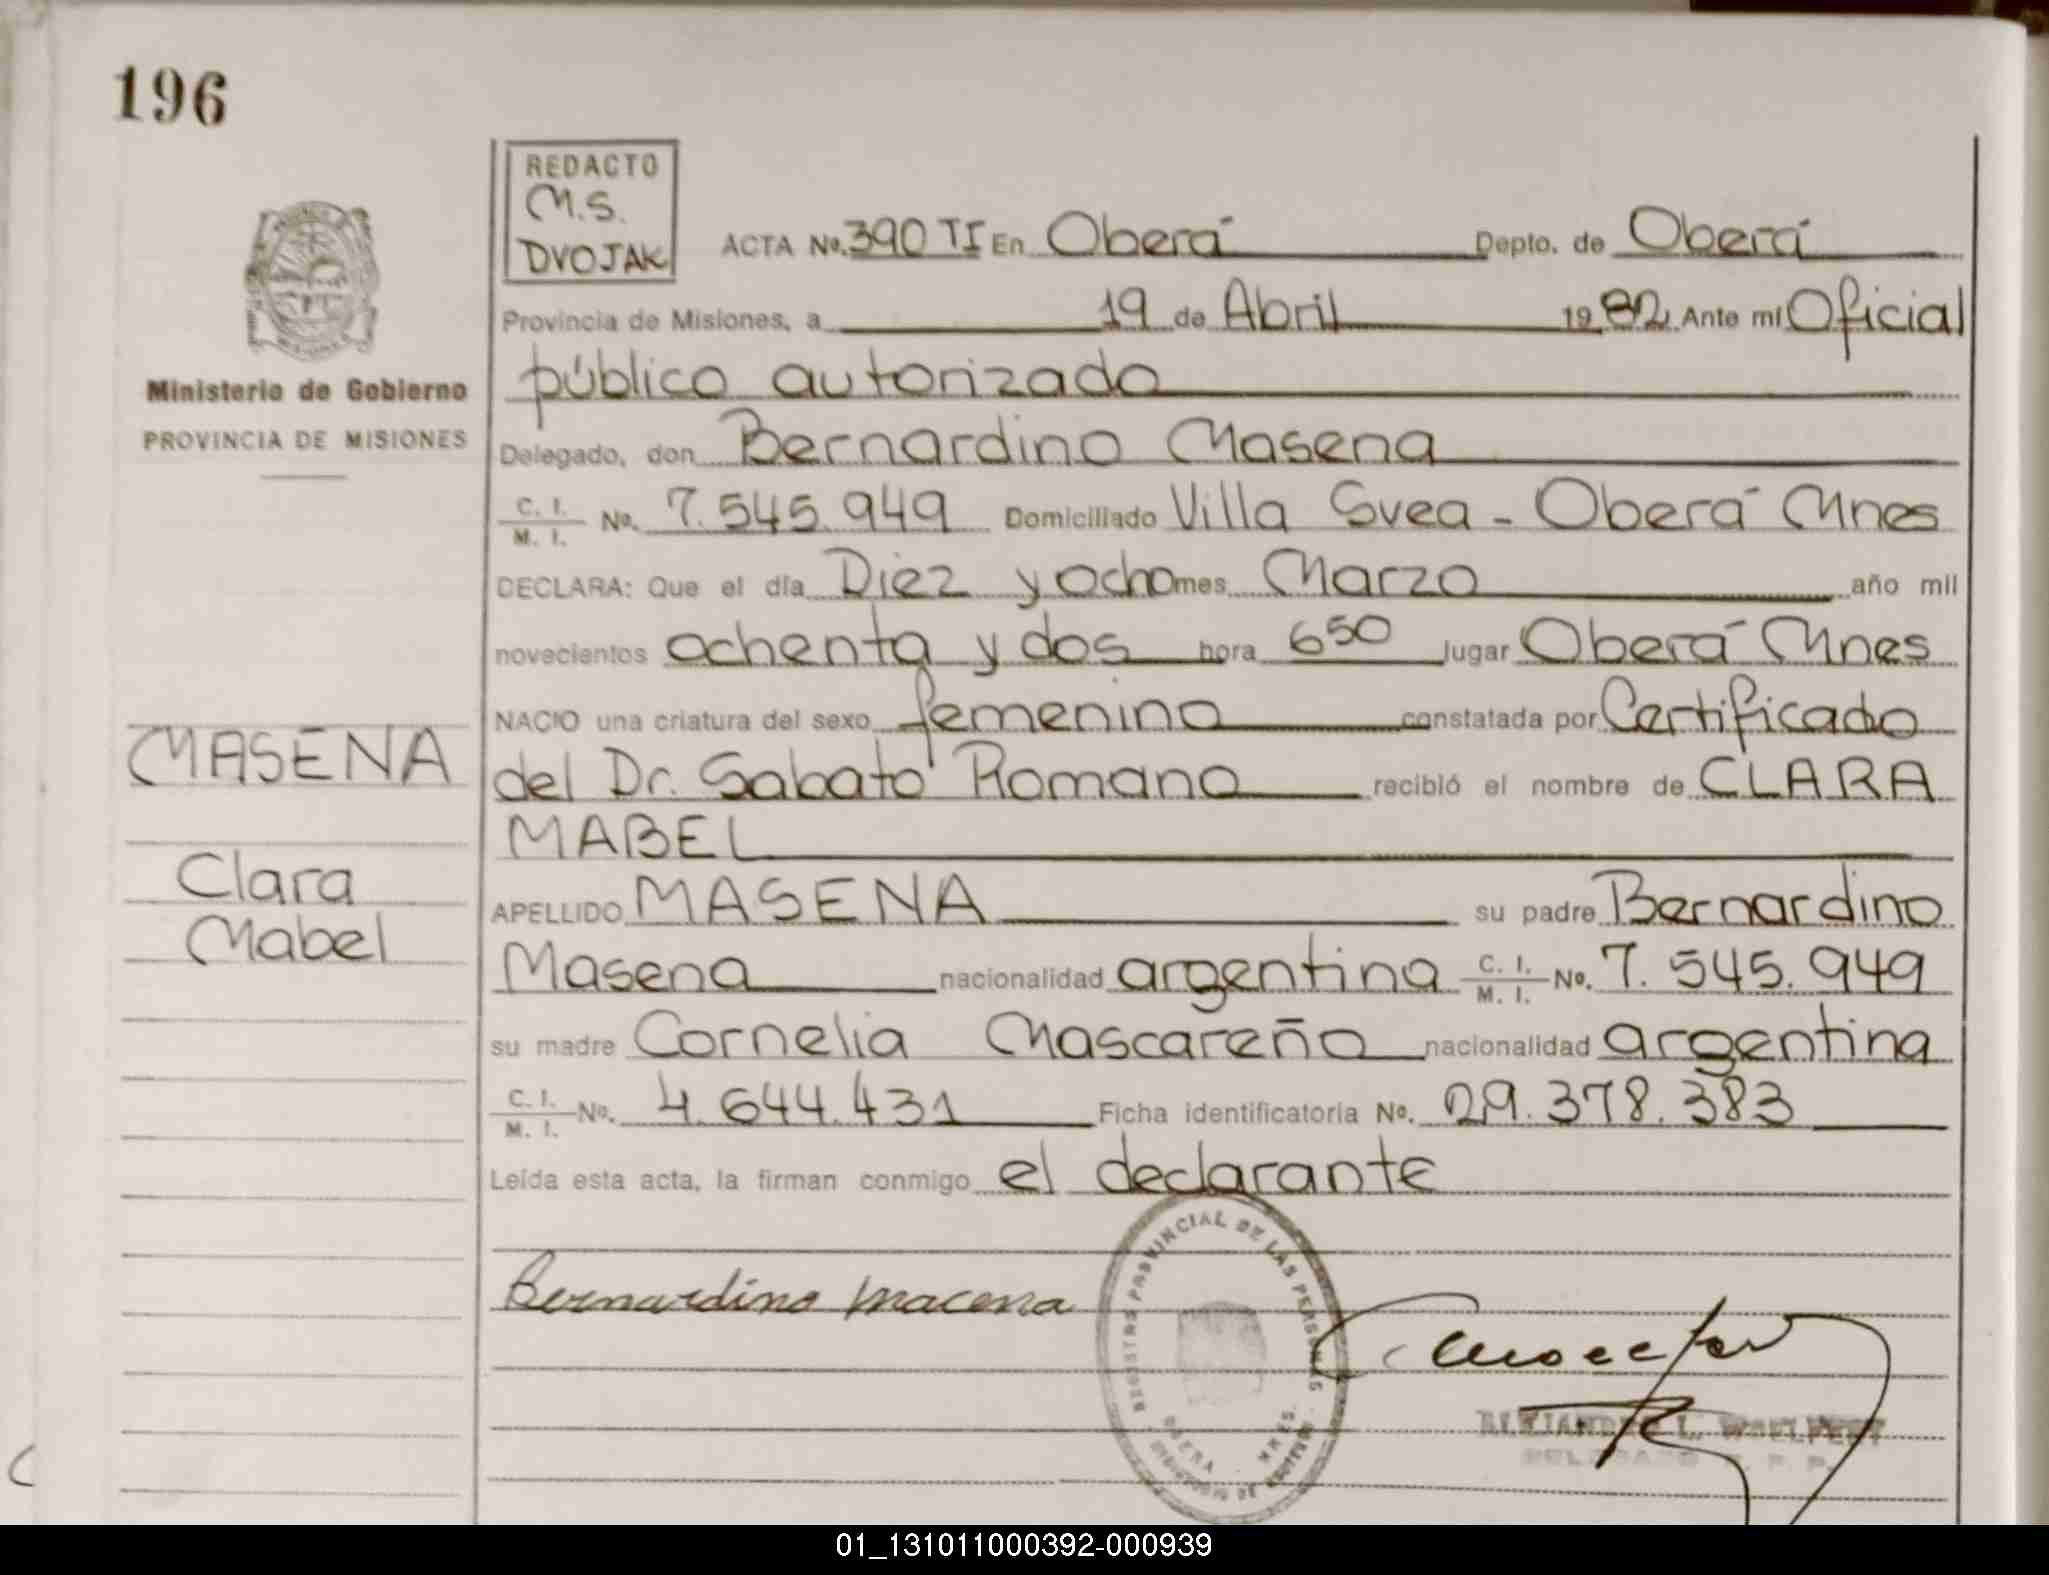 196
REDACTO
M.S.
DVOJAK
ACTA No. 390 TI En Oberá Depto. de Oberá
Provincia de Misiones, a 19 de Abril 1982 Ante mi Oficial
público autorizado
Ministerio de Gobierno
PROVINCIA DE MISIONES
Delegado, don Bernardino Masena
C. I. / M. I. No. 7.545.949 Domiciliado Villa Svea - Oberá Mnes
DECLARA: Que el día Diez y ocho mes Marzo año mil
novecientos ochenta y dos hora 6 50 lugar Oberá Mnes
NACIO una criatura del sexo femenino constatada por Certificado
MASENA
del Dr. Sabato Romano recibió el nombre de CLARA
MABEL
Clara
Mabel
APELLIDO MASENA su padre Bernardino
Masena nacionalidad argentina C. I. / M. I. No. 7.545.949
su madre Cornelia Mascareño nacionalidad argentina
C. I. / M. I. No. 4.644.431 Ficha identificatoria No. 29.378.383
Leída esta acta, la firman conmigo el declarante
Bernardino Macena
PROVINCIAL DE LAS PERSONAS
OBERA MNES.
ALEJANDRO L. WOELFERT
01_131011000392-000939